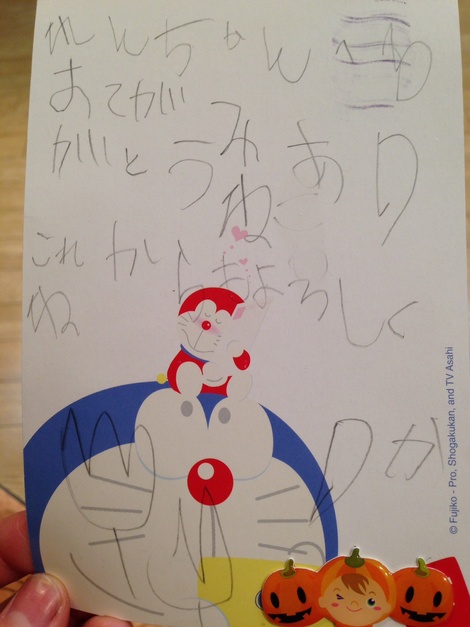 れんちゃんへ
おてがみあり
がとうね
これからもよろしく
ね
りか
© Fujiko - Pro, Shogakukan, and TV Asahi